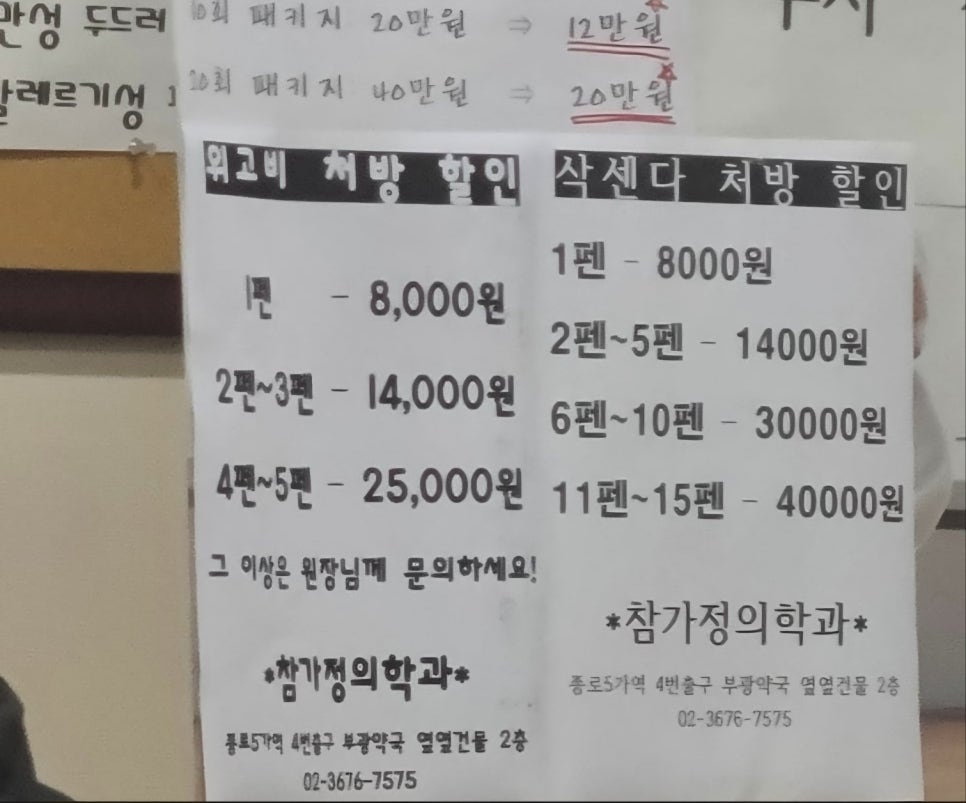 만성 두드레
알레르기성
10회 패키지 20만원 ⇒ 12만원
20회 패키지 40만원 ⇒ 20만원
위고비 처방 할인
1펜 - 8,000원
2펜~3펜 - 14,000원
4펜~5펜 - 25,000원
그 이상은 원장님께 문의하세요!
*참가정의학과*
종로5가역 4번출구 부광약국 옆옆건물 2층
02-3676-7575
삭센다 처방 할인
1펜 - 8000원
2펜~5펜 - 14000원
6펜~10펜 - 30000원
11펜~15펜 - 40000원
*참가정의학과*
종로5가역 4번출구 부광약국 옆옆건물 2층
02-3676-7575